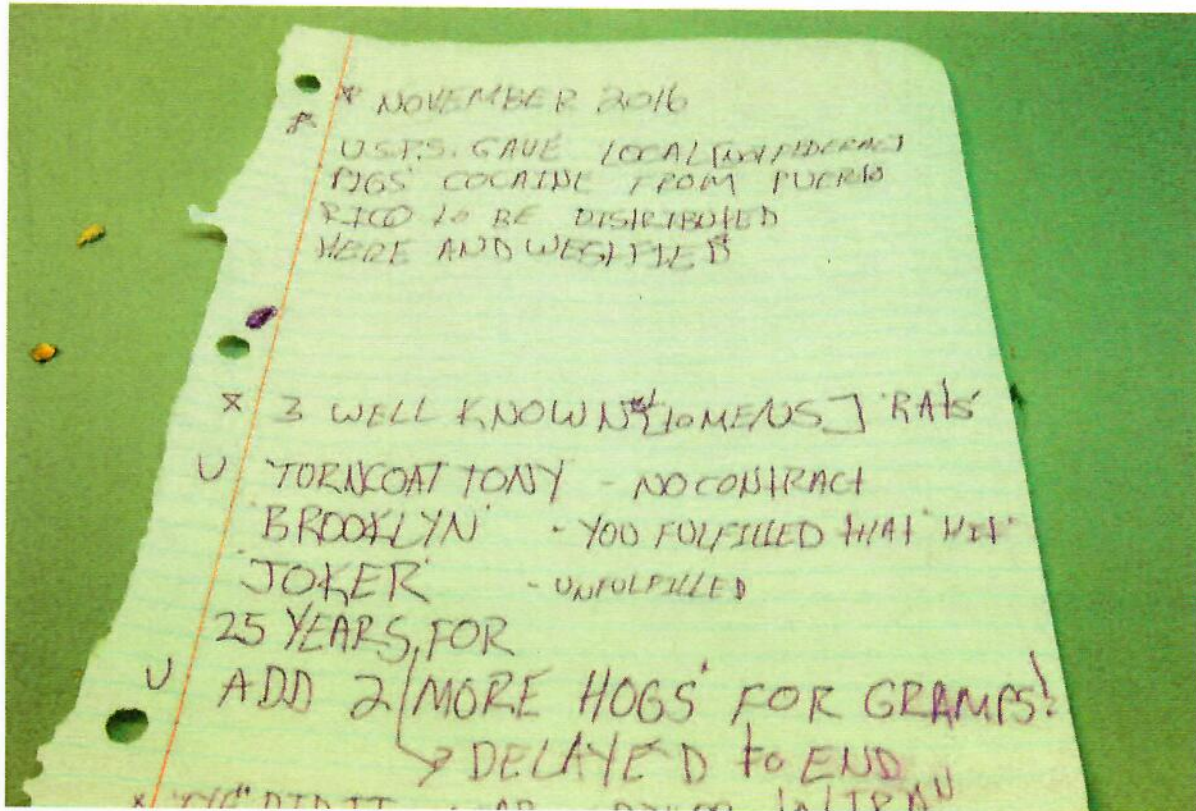 * NOVEMBER 2016
* U.S.P.S. GAVE LOCAL [NOT FEDERAL]
PIGS' COCAINE FROM PUERTO
RICO to BE DISTRIBUTED
HERE AND WESTFIELD
* 3 WELL KNOWN RATS'
U 'TORNCOAT TONY - NO CONTRACT
'BROOKLYN' - YOU FULFILLED THAT 'HIT'
'JOKER' - UNFULFILLED
25 YEARS, FOR
U ADD 2 MORE HOGS' FOR GRAMPS!
DELAYE'D to END
DID IT